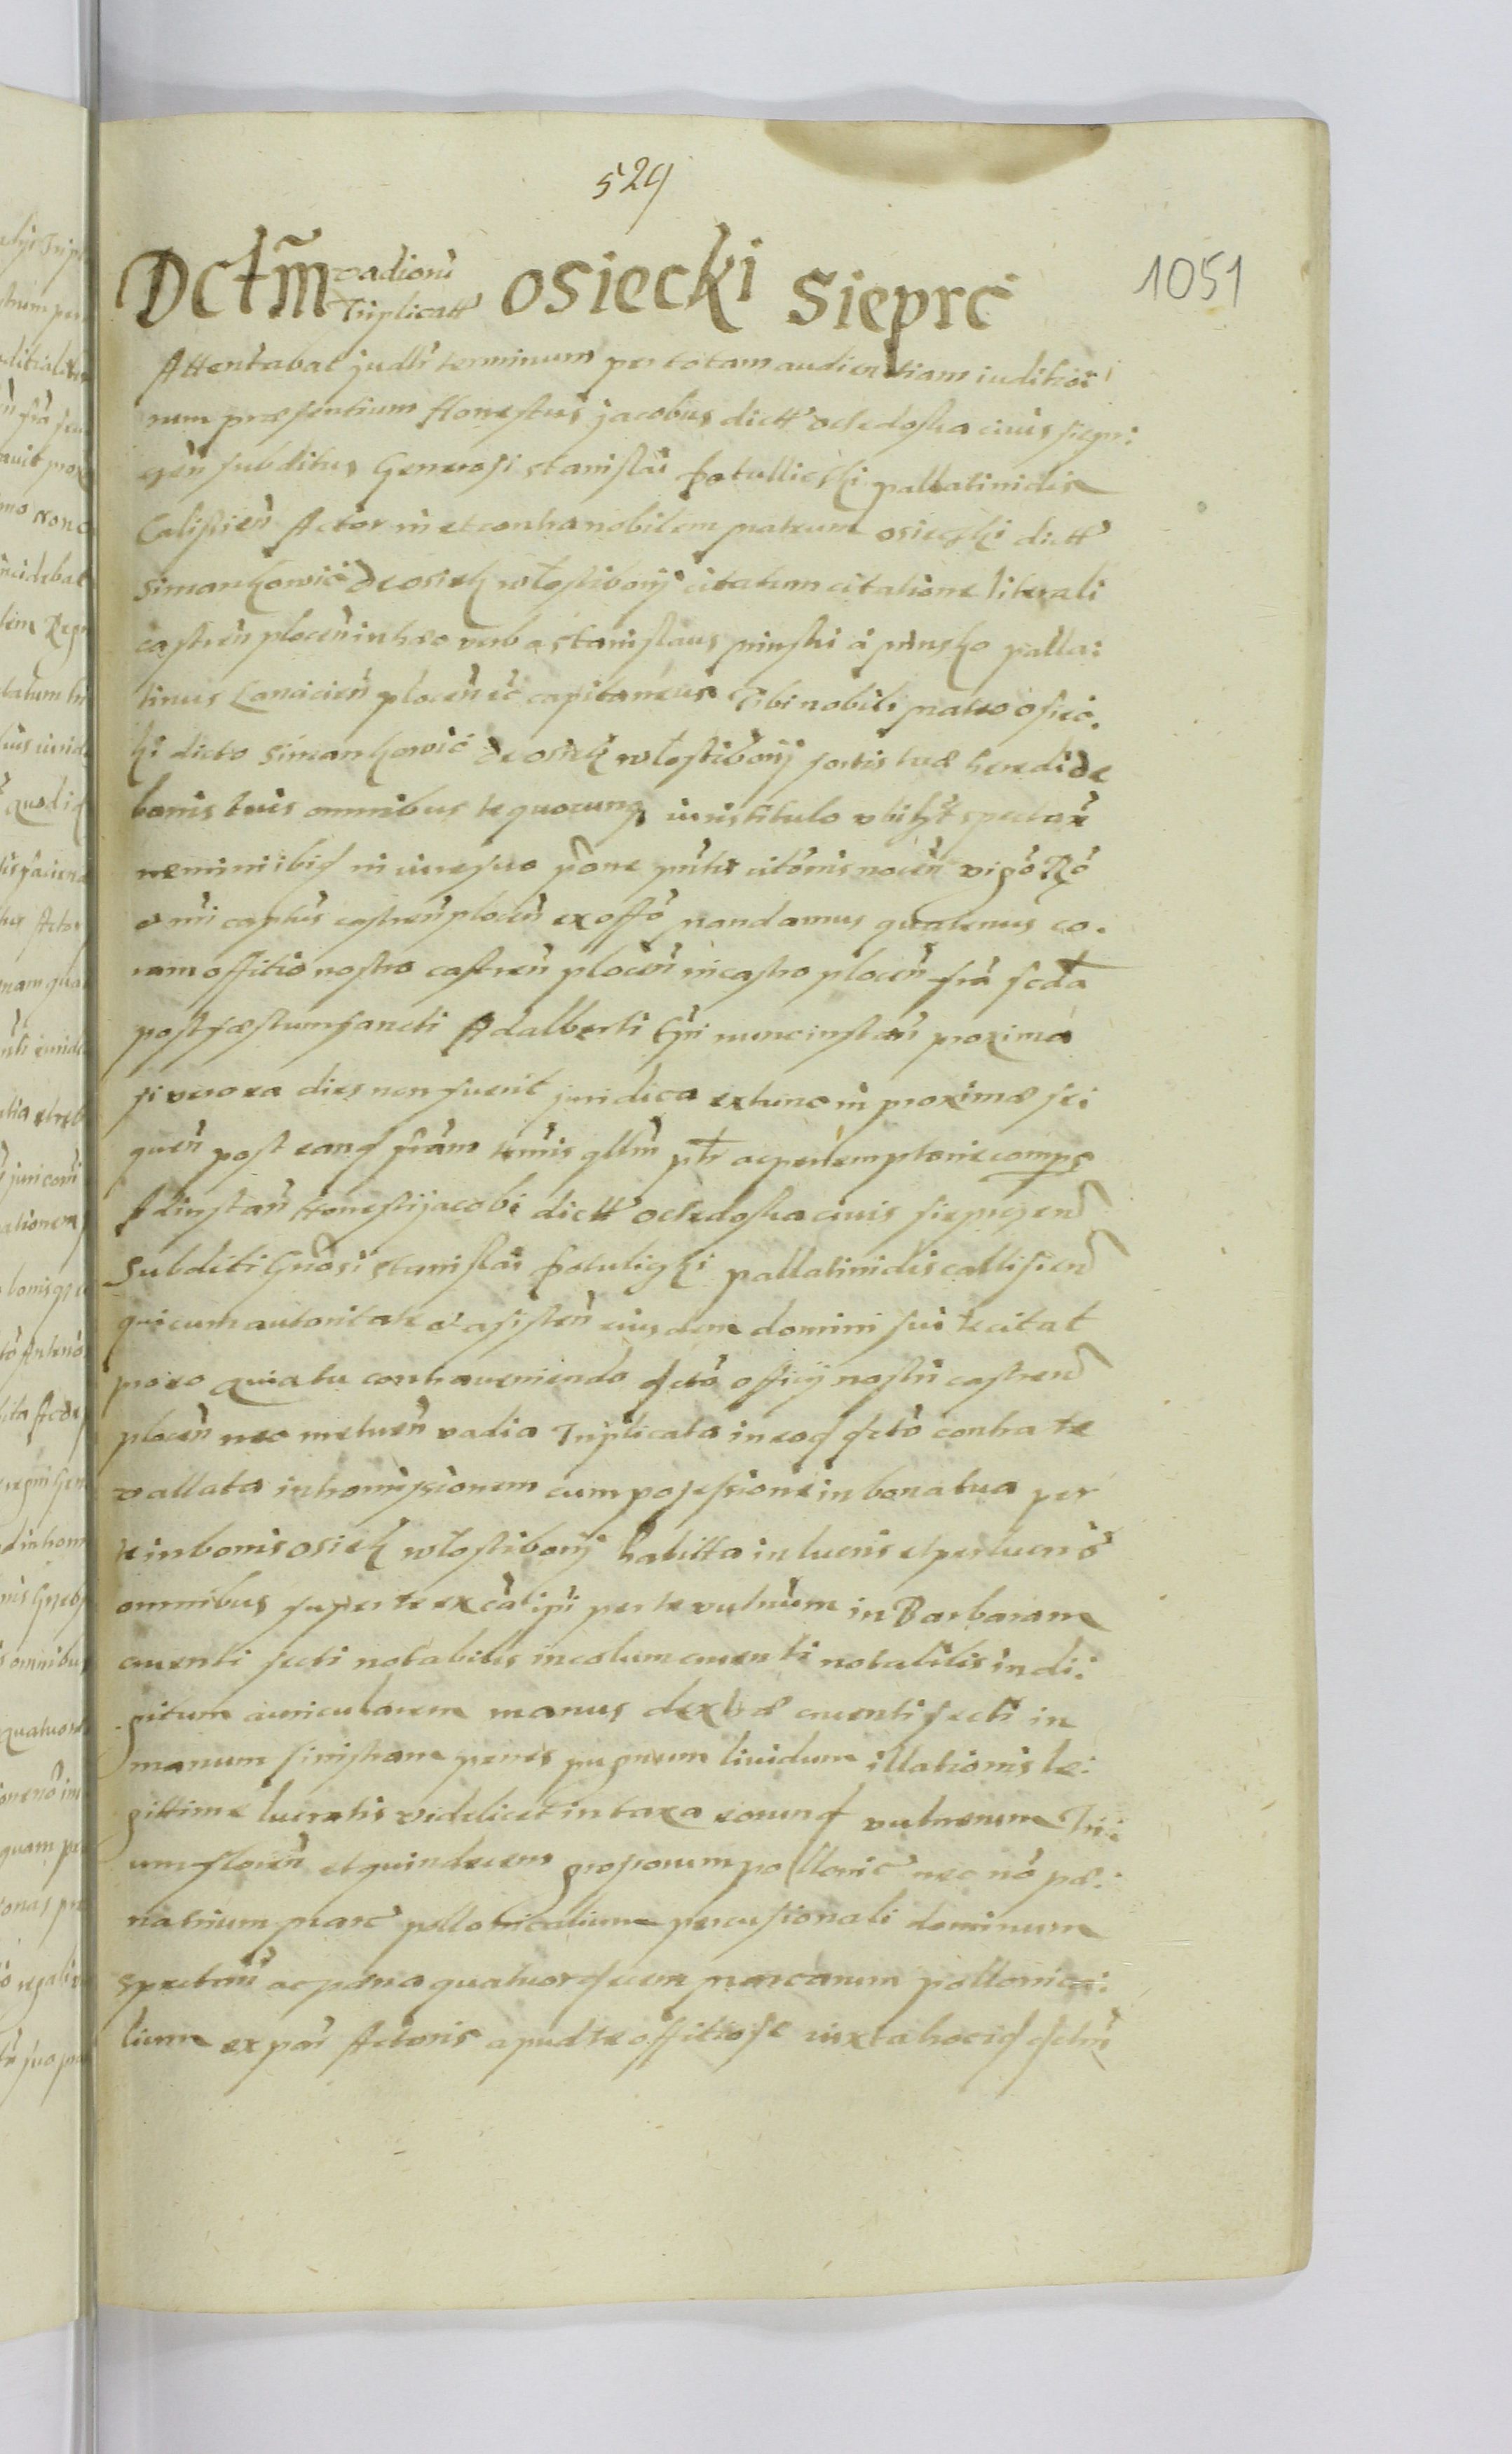 529
1051
Dctm̃ vadiorũ Triplicatt osiecki Sieprć
Attentabat judlr̃ terminum per totam audientiam iuditiõr
rum præsentium Honestus jacobus dictt ochedoska ciuis siepr:
cẽn subditus Generosi stanislai Potullicki pallatinidis
Calisien̄ Actor in et contra nobilem mateum osieczki dictt
Simankowic de osiek włostibory citatum citatione literali
castren̄ plocen̄ in hæc verba Stanislaus minski a minsko palla:
tinus Lancicien̄ plocen̄ ec̄ capitaneus Tibi nobili mateo osiec.
ki dicto Simankowic de osiek włostibory sortis tuæ heredi de
bonis tuis omnibus te quocunq iuris titulo spectañ
nemini ibid in iure suo p̄one citõnis nocen̄ vigõ Rõ
castren̄ plocen̄ ex offõ mandamus quatenus co.
ram offitio nostro castren̄ plocen̄ in castro plocen̄ fr̄ia scda
post fæstum sancti Adalberti Epi nunc instan̄ proxima
si vero ea dies non fuerit juridica extunc in proxime se:
quen̄ post eand fr̄iam ac peremptorie compe
Ad instan̄ Honesti jacobi dictt ochedoska ciuis sieprcen
Subditi Gn̄osi stanislai Potulicki pallatinidis callisien
qui cum autoritate et asisten̄ eiusdem domini sui te citat
pro eo quia tu contraueniendo dctõ officij nostri castren
plocen̄ nec metuen̄ vadia Triplicata in eod dctõ contra te
vallata intromissionem cum possessione in bona tua per
te in bonis osiek włostibory habitta in lucris et perlucris
omnibus super te ex cã ipsi per te vulnerum in Barbaram
cruenti secti notabilis in colum cruenti notabilis in di:
gitum auricularem manus dextræ cruenti secti in
manum sinistram penes pugnum liuidum illationis le:
gittime lucratis videlicet in taxa eorund vulnerum Tri:
um floren̄ et quindecem grossorum pollonic nec nõ pæ:
na trium marc pollonicalium percusionali dominum
spectan̄ ac pæna quatuordecem marcarum pollonica:
lium ex par̄ Actoris apud te offitiose iuxta hoc id dctm̄